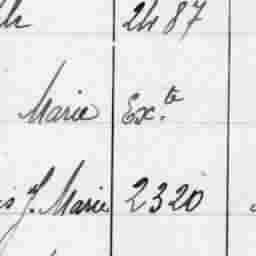 2487
Marie Ex.te
J. Marie 2320